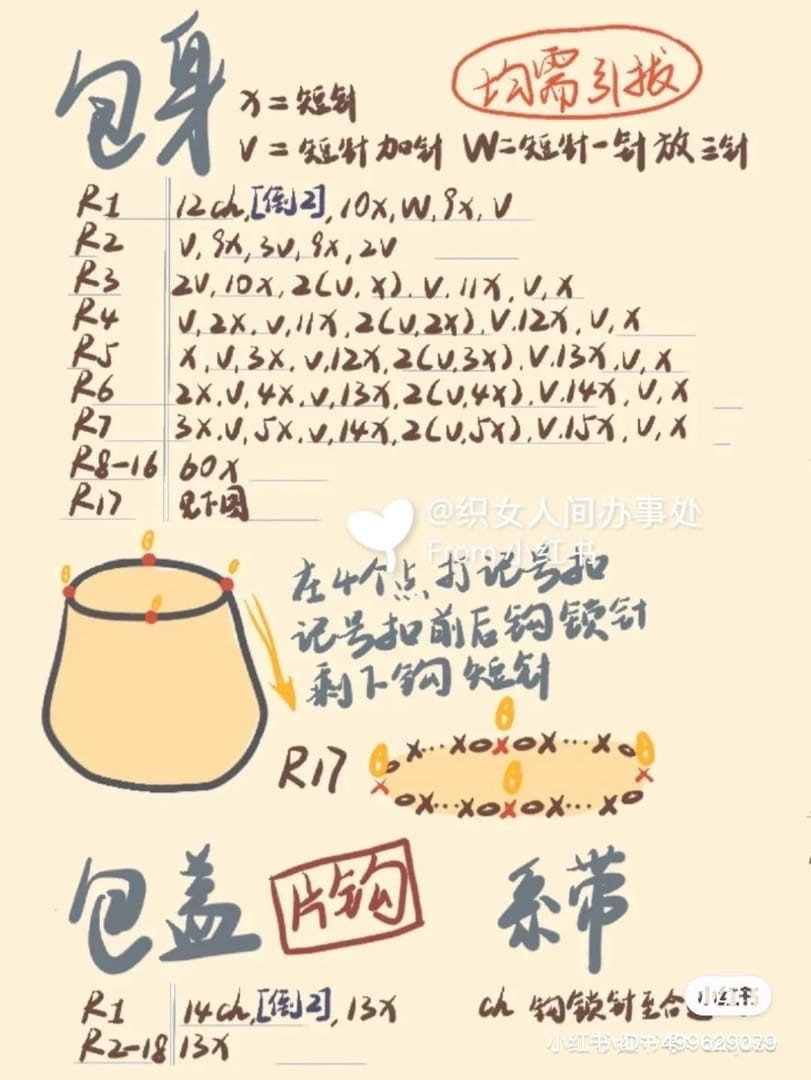 包身
均需引拔
x = 短针
V = 短针加针 W=短针一针放三针
R1 12ch,[倒2],10x,W,9x,V
R2 V,9x,3V,9x,2V
R3 2V,10x,2(V,x).V.11x,V,x
R4 V,2x.V,11x,2(V,2x).V.12x,V,x
R5 x,V,3x.V,12x,2(V,3x).V.13x,V,x
R6 2x.V,4x.V,13x,2(V,4x).V.14x,V,x
R7 3x.V,5x.V,14x,2(V,5x).V.15x,V,x
R8-16 60x
R17 见下图
@织女人间办事处
From 小红书
在4个点打记号扣
记号扣前后钩锁针
剩下钩短针
R17
x...xoxox...xo
ox...xoxox...xo
包盖
片钩
系带
R1 14ch,[倒2],13x
R2-18 13x
ch 钩锁针至合
小红书